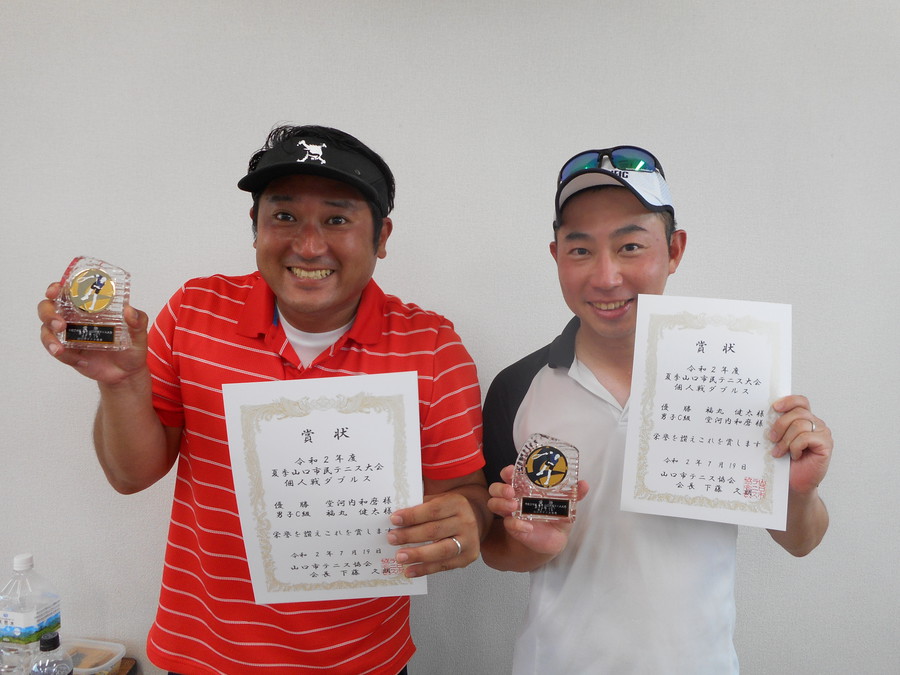 賞状
令和2年度
夏季山口市民テニス大会
個人戦ダブルス
優勝 堂河内和磨様
男子C組 福丸 健太様
栄誉を讃えこれを賞します
令和 2年 7月 19日
山口市テニス協会
会長 下藤 久
賞状
令和2年度
夏季山口市民テニス大会
個人戦ダブルス
優勝 福丸 健太様
男子C組 堂河内和磨様
栄誉を讃えこれを賞します
令和 2年 7月 19日
山口市テニス協会
会長 下藤 久